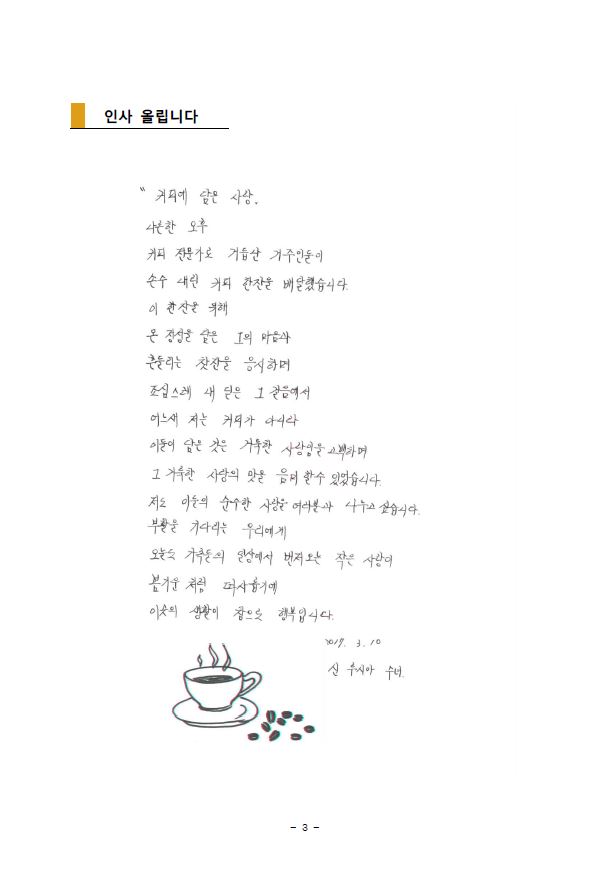 인사 올립니다
" 커피에 담은 사랑.
나른한 오후
커피 전문가로 거듭난 거주인들이
손수 내린 커피 한잔을 배달했습니다.
이 한잔을 위해
온 정성을 담은 그의 마음과
흔들리는 찻잔을 응시하며
조심스레 내 딛은 그 걸음에서
어느새 저는 커피가 아니라
이들이 담은 것은 거룩한 사랑임을 고백하며
그 거룩한 사랑의 맛을 음미 할수 있었습니다.
저는 이들의 순수한 사랑을 여러분과 나누고 싶습니다.
부활을 기다리는 우리에게
오늘도 가족들의 일상에서 번져오는 작은 사랑이
봄기운 처럼 따사롭기에
이곳의 생활이 참으로 행복입니다.
2019. 3. 10
신 루시아 수녀.
- 3 -